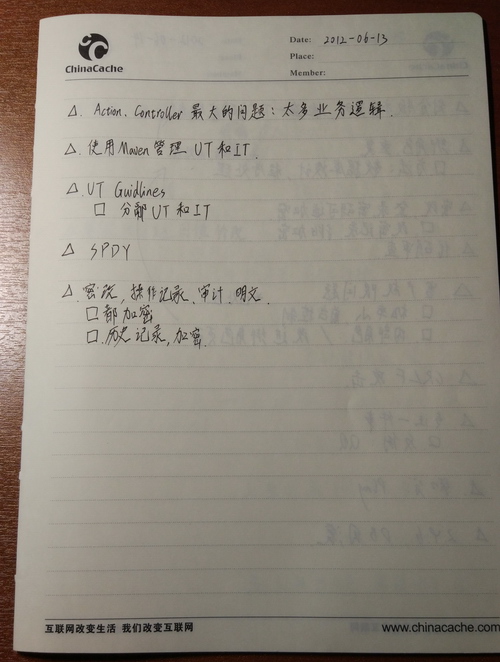 ChinaCache
Date: 2012-06-13
Place:
Member:
△. Action、Controller 最大的问题：太多业务逻辑.
△. 使用Maven管理 UT和IT.
△. UT Guidlines
□ 分部UT和IT
△ SPDY
△. 密码，操作记录、审计、明文.
□ 都加密
□. 历史记录，加密.
互联网改变生活 我们改变互联网
www.chinacache.com